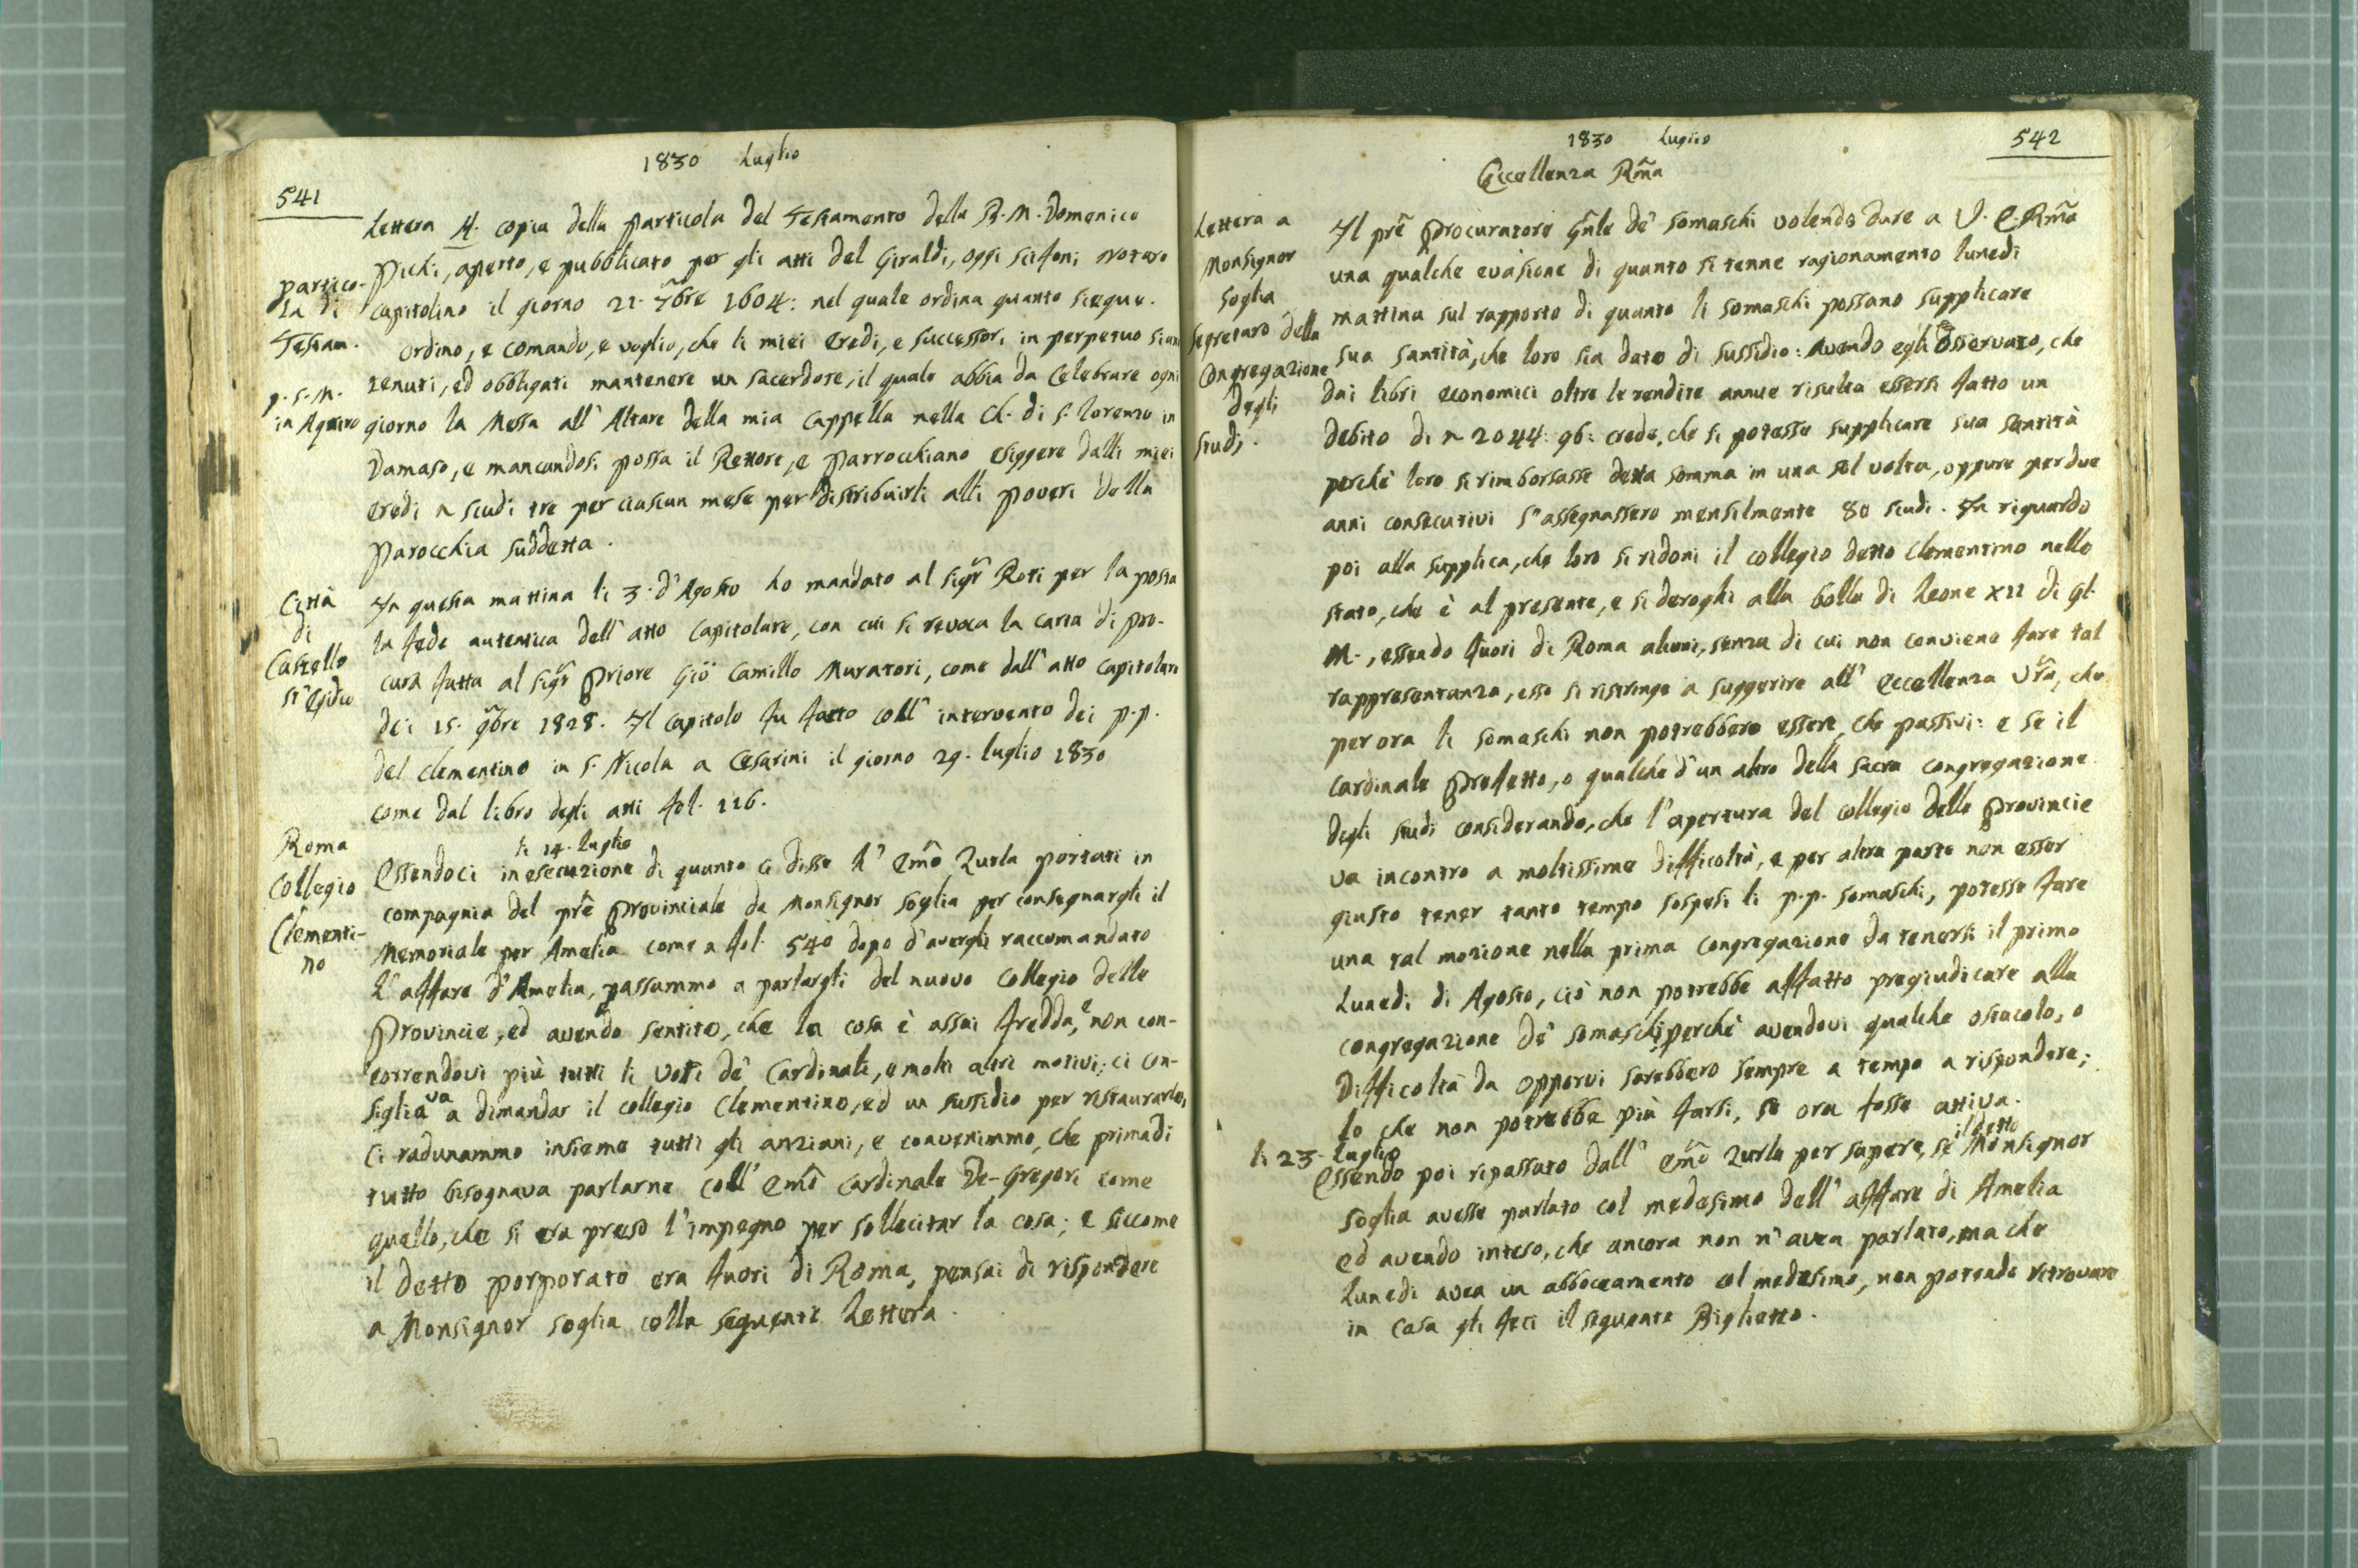 1830 Luglio
541
Lettera H. copia della particola del Testamento della B. M. Domenico
Pichi, aperto, e pubblicato per gli atti del Giraldi, oggi Scifoni Notaro
Capitolino il giorno 21. 7bre 1604: nel quale ordina quanto siegue.
Partico-
la di
Testam.
p. S. M.
in Aquiro
Ordino, e comando, e voglio, che li miei Eredi, e successori in perpetuo siano
tenuti, ed obbligati mantenere un sacerdote, il quale abbia da Celebrare ogni
giorno la Messa all' Altare della mia Cappella nella Ch. di S. Lorenzo in
Damaso, e mancandosi possa il Rettore, e Parrocchiano esiggere dalli miei
Eredi scudi tre per ciascun mese per distribuirli alli poveri della
Parocchia suddetta.
Città
di
Castello
St' Egidio
In questa mattina li 3. d'Agosto ho mandato al Sigr Roti per la posta
la fede autentica dell' atto Capitolare, con cui si revoca la carta di pro-
cura fatta al Sigr Priore Gio Camillo Muratori, come dall' atto Capitolare
dei 15. 9bre 1828. Il Capitolo fu fatto coll' intervento dei p.p.
del Clementino in S. Nicola a Cesarini il giorno 29. luglio 1830
come dal libro degli atti fol. 116.
Roma
Collegio
Clementi-
no
li 14. luglio
Essendoci in esecuzione di quanto ci disse L' Emo Zurla portati in
compagnia del pre Provinciale da Monsignor Soglia per consegnargli il
Memoriale per Amelia come a fol. 540 dopo d'avergli raccomandato
L' affare d'Amelia, passammo a parlargli del nuovo Collegio delle
Provincie, ed avendo sentito, che la cosa è assai fredda, e non con-
correndovi più tutti li voti de' Cardinali, e molti altri motivi; ci con-
siglia va a dimandar il collegio Clementino, ed un sussidio per ristaurarlo,
Ci radunammo insieme tutti gli anziani, e convenimmo, che prima di
tutto bisognava parlarne coll' Emo Cardinale De-Gregori come
quello, che si era preso l'impegno per sollecitar la cosa; e siccome
il detto porporato era fuori di Roma, pensai di rispondere
a Monsignor Soglia colla seguente Lettera.
1830 Luglio
542
Eccellenza Rma
Lettera a
Monsignor
Soglia
Segretaro della
Congregazione
degli
Studj.
Il pre Procuratore Gnle de' Somaschi volendo dare a V. E. Rma
una qualche evasione di quanto si tenne ragionamento lunedi
mattina sul rapporto di quanto li Somaschi possano supplicare
sua Santità, che loro sia dato di sussidio: Avendo egli osservato, che
dai libri economici oltre le rendite annue risulta essersi fatto un
debito di 2044: 96: crede, che si potesse supplicare sua Santità
perchè loro si rimborsasse detta somma in una sol volta, oppure per due
anni consecutivi s'assegnassero mensilmente 80 scudi. In riguardo
poi alla supplica, che loro si ridoni il collegio detto Clementino nello
stato, che è al presente, e si deroghi alla bolla di Leone XII di gl.
M., essendo fuori di Roma alcuni, senza di cui non conviene fare tal
rappresentanza, esso si ristringe a suggerire all' Eccellenza Vra, che
per ora li Somaschi non potrebbero essere, che passivi: e se il
Cardinale Prefetto, o qualche d'un altro della Sacra Congregazione
degli studi considerando, che l'apertura del collegio delle Provincie
va incontro a moltissime difficoltà, e per altra parte non esser
giusto tener tanto tempo sospesi li p.p. Somaschi, potesse fare
una tal mozione nella prima Congregazione da tenersi il primo
Lunedi di Agosto, ciò non potrebbe affatto pregiudicare alla
congregazione de' Somaschi, perchè avendovi qualche ostacolo, o
difficoltà da opporvi sarebbero sempre a tempo a rispondere;
lo che non potrebbe più farsi, se ora fosse attiva.
li 23. luglio
Essendo poi ripassato dall' Emo Zurla per sapere, se il detto Monsignor
Soglia avesse parlato col medesimo dell' affare di Amelia
ed avendo inteso, che ancora non n' avea parlato, ma che
Lunedi avea un abboccamento col medesimo, non potendo ritrovare
in casa gli feci il seguente Biglietto.